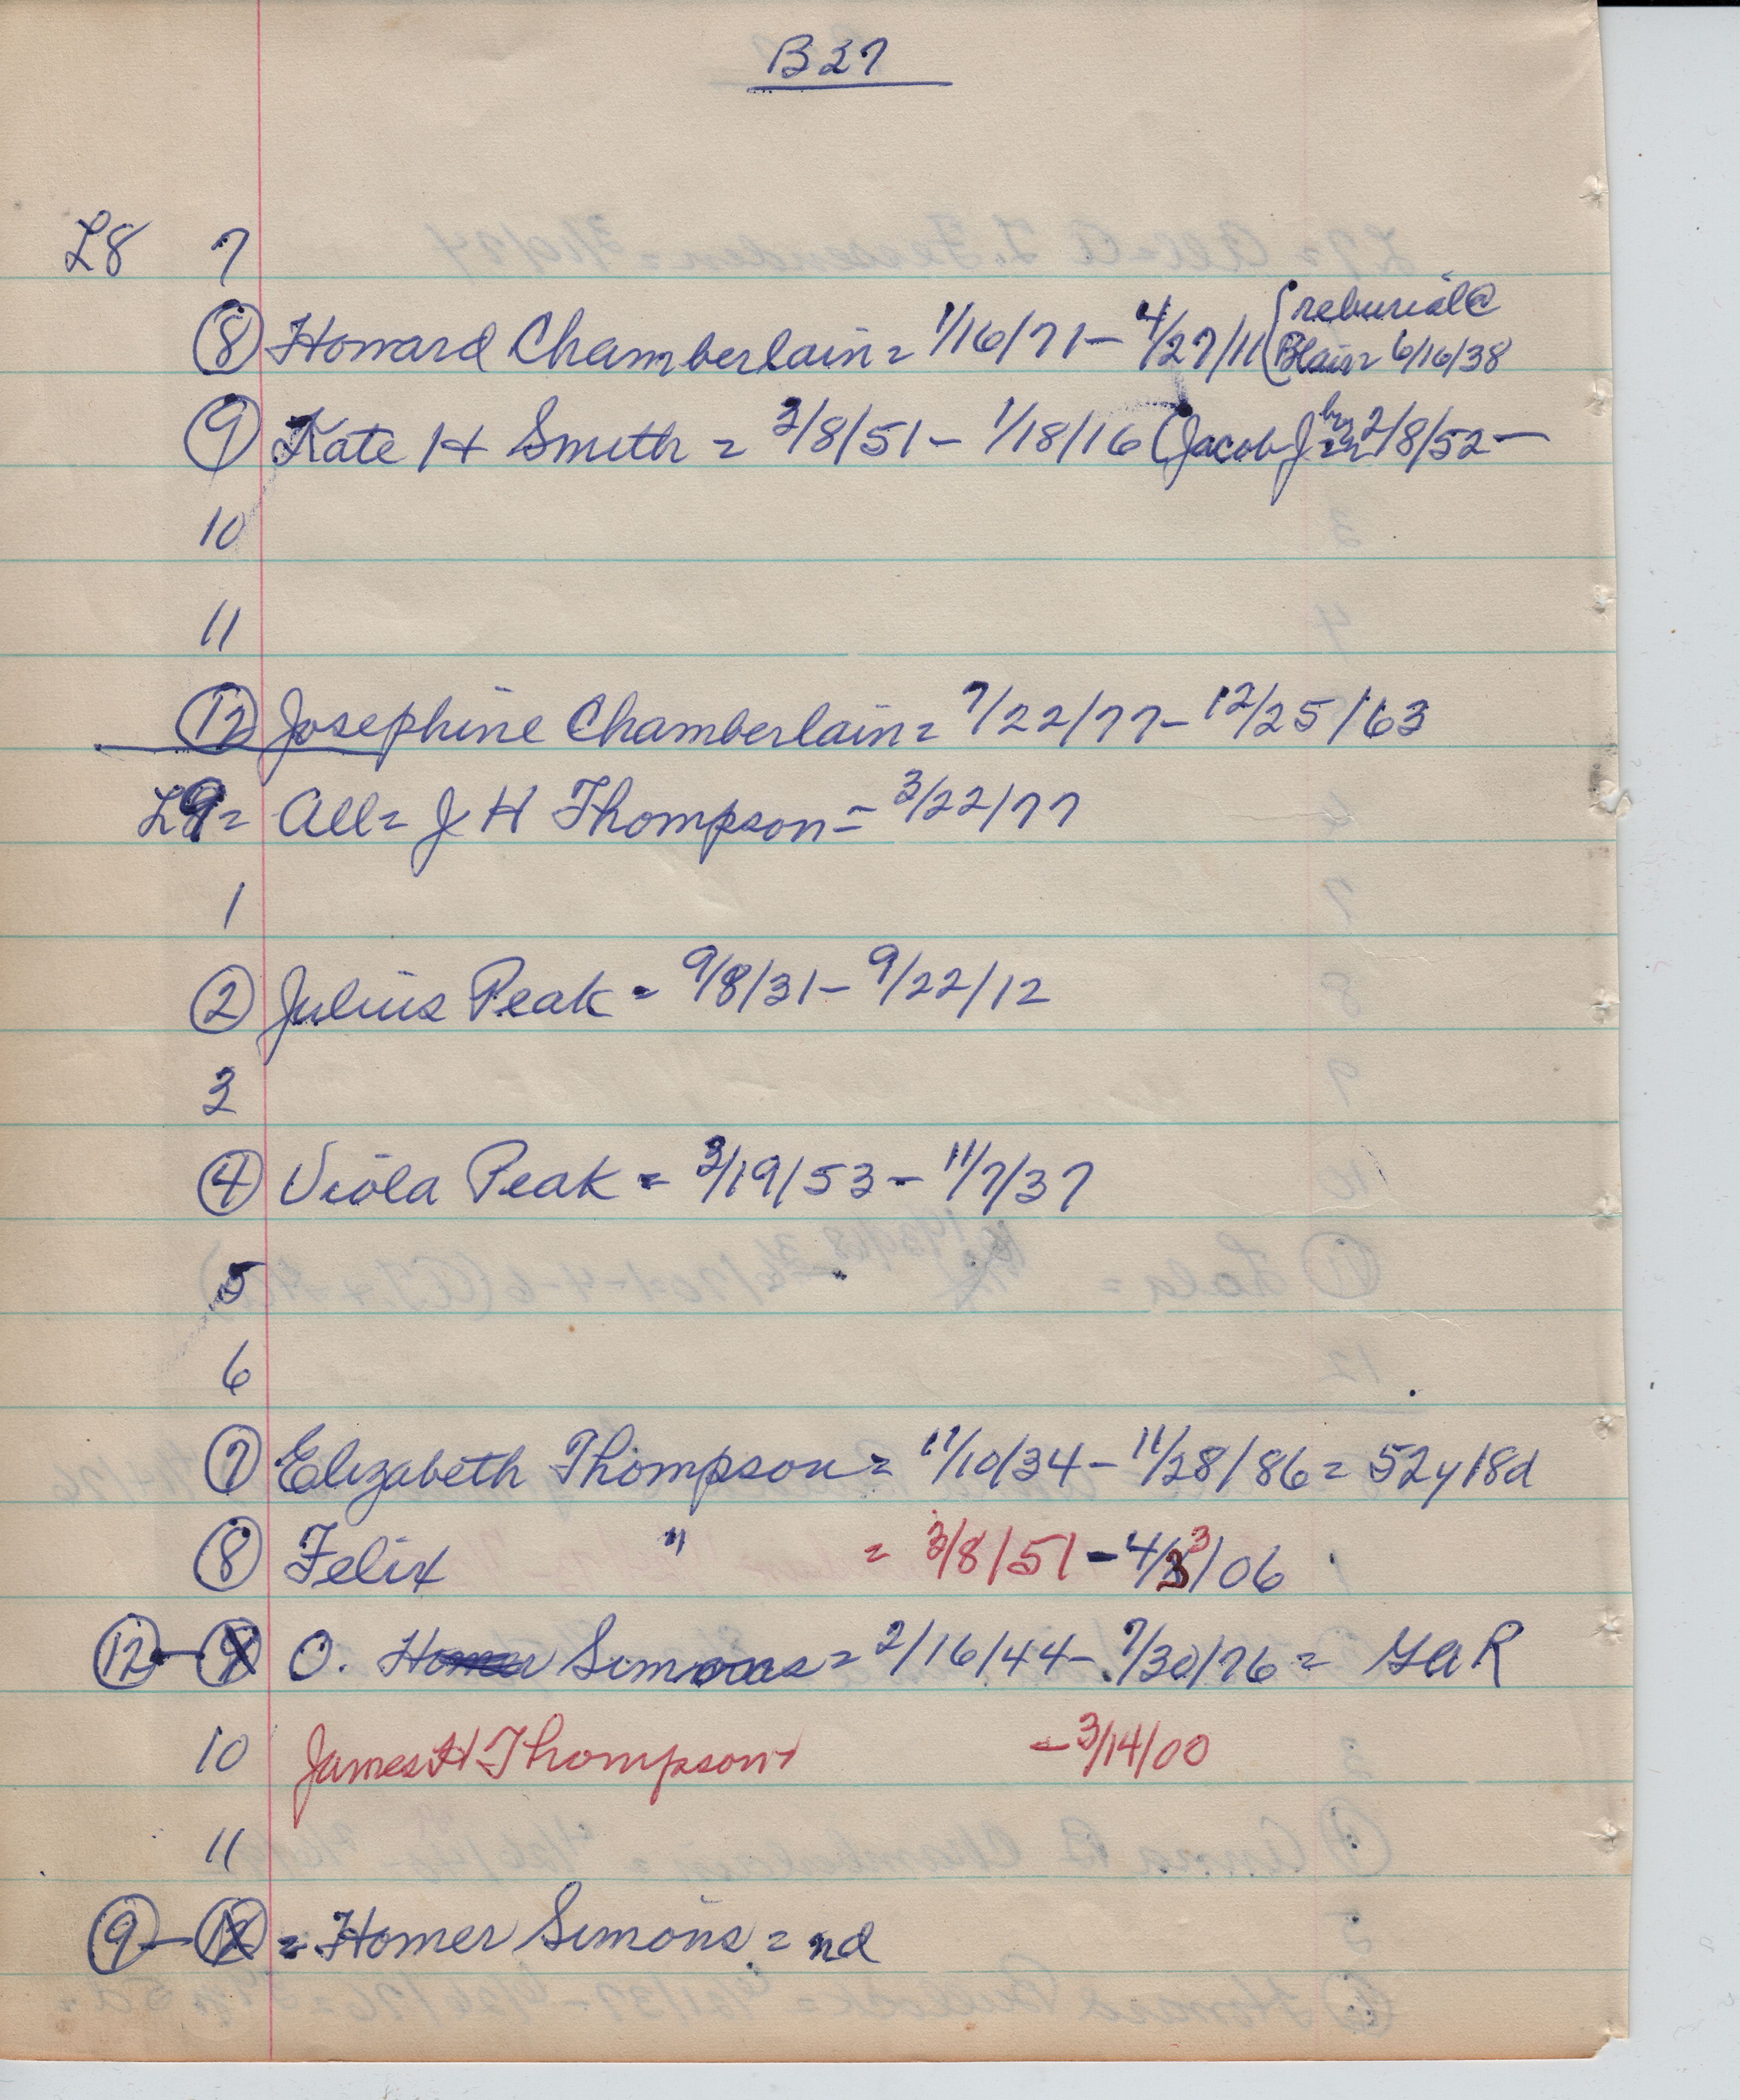 B27
L8 7
⑧ Howard Chamberlain = 1/16/71 - 4/27/11 { reburial @
Blair = 6/16/38
⑨ Kate H Smith = 3/8/51 - 1/18/16 (Jacob J 2/8/52 -
10
11
⑫ Josephine Chamberlain = 7/22/77 - 12/25/63
L9 = All = J H Thompson = 3/22/77
1
② Julius Peak = 9/8/31 - 9/22/12
3
④ Viola Peak = 3/19/53 - 11/7/37
5
6
⑦ Elizabeth Thompson = 11/10/34 - 11/28/86 = 52y 18d
⑧ Felix " = 3/8/51 - 4/3/06
⑫ - ⑨ O. Homer Simons = 2/16/44 - 7/30/76 = GAR
10 James H Thompson - 3/14/00
11
⑨ - ⑫ = Homer Simons = nd